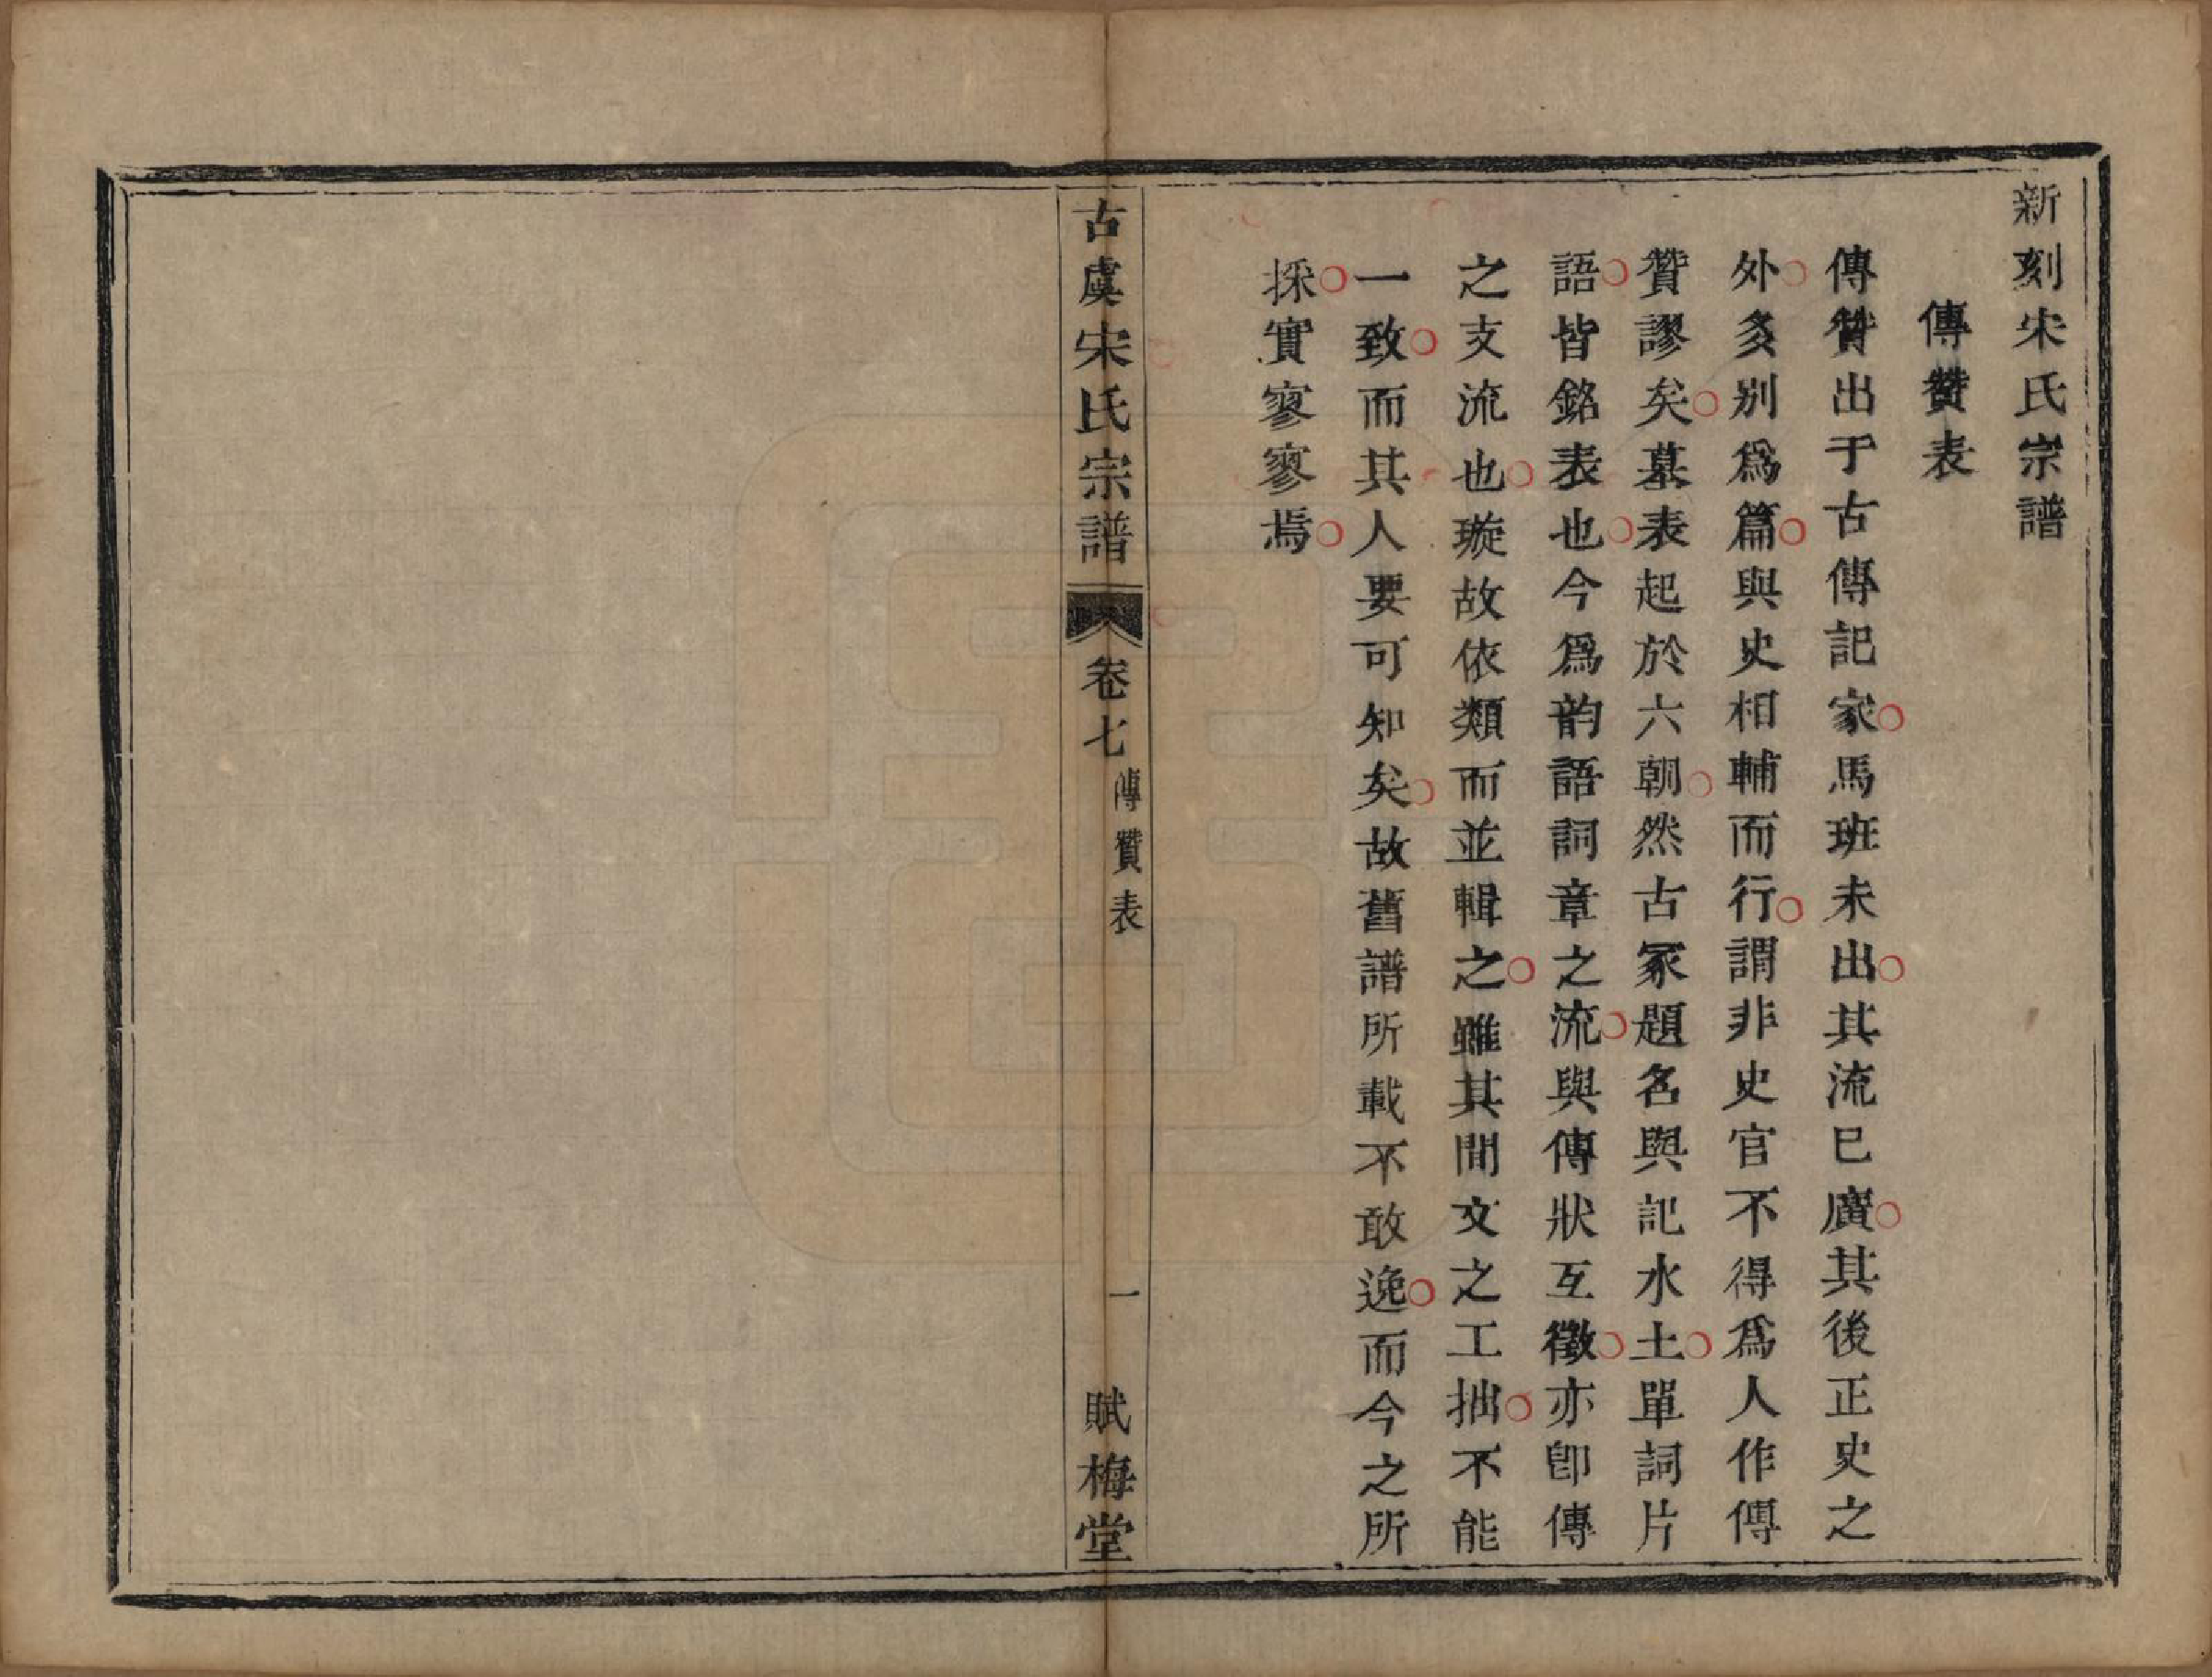 新刻宋氏宗譜
傳贊表
傳贊出于古傳記家馬班未出其流巳廣其後正史之
外多別爲篇與史相輔而行謂非史官不得爲人作傳
贊謬矣墓表起於六朝然古冢題名與記水土單詞片
語皆銘表也今爲韵語詞章之流與傳狀互徵亦卽傳
之支流也璇故依類而並輯之雖其間文之工拙不能
一致而其人要可知矣故舊譜所載不敢逸而今之所
採實寥寥焉
古虞宋氏宗譜 卷七 傳贊表 一 賦梅堂